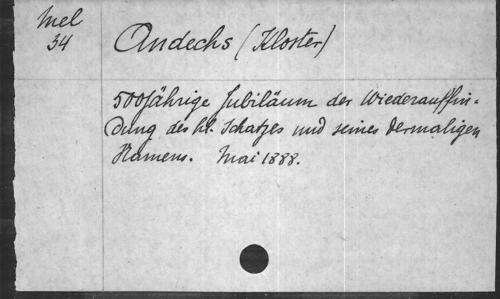 Mel
34
Andechs (Kloster)
500jährige Jubiläum der Wiederauffin-
dung des hl. Schatzes und seines dermaligen
Namens. Mai 1888.